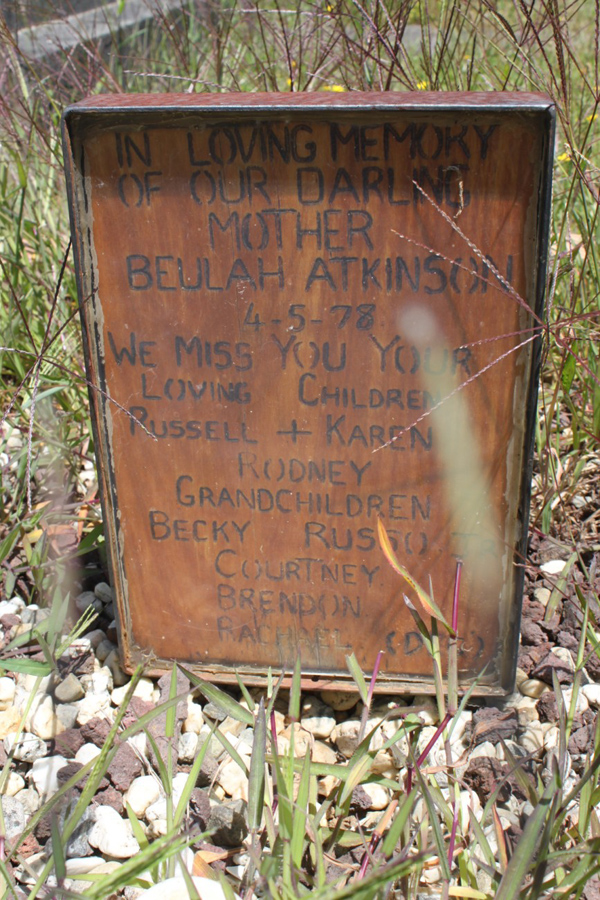 IN LOVING MEMORY
OF OUR DARLING
MOTHER
BEULAH ATKINSON
4-5-78
WE MISS YOU YOUR
LOVING CHILDREN
RUSSELL + KAREN
RODNEY
GRANDCHILDREN
BECKY RUSSO
COURTNEY
BRENDON
RACHAEL